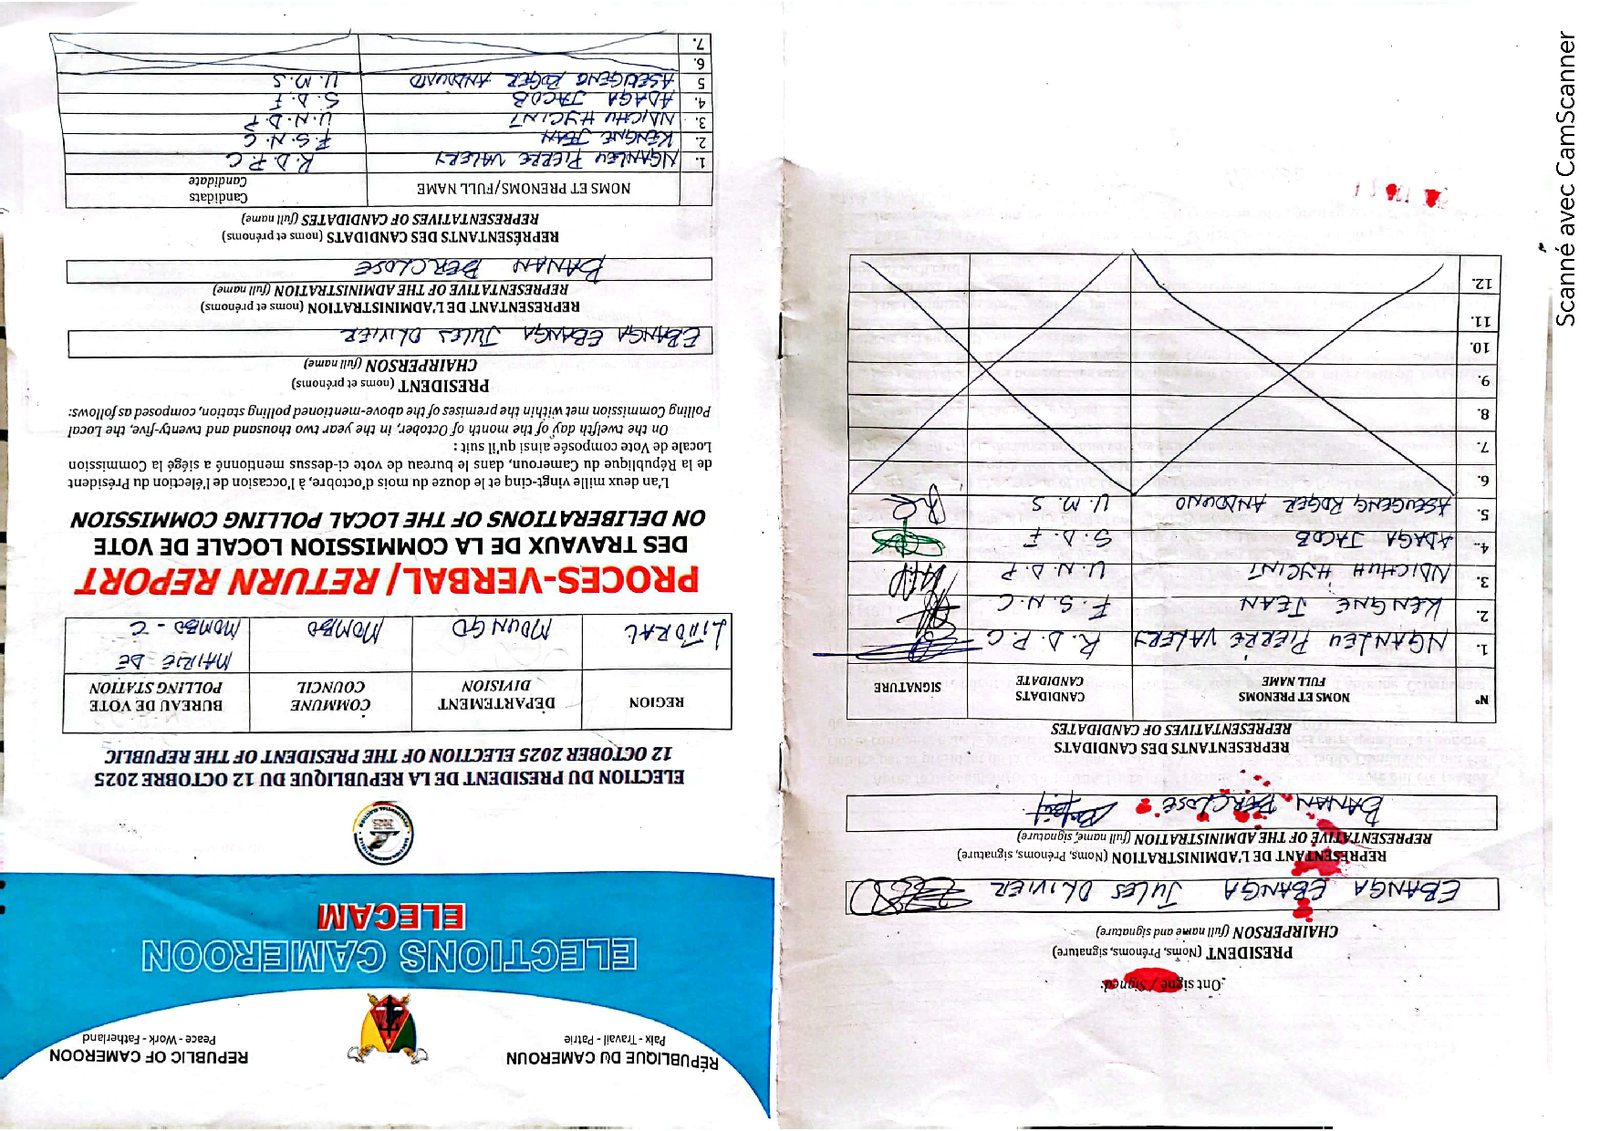 RÉPUBLIQUE DU CAMEROUN
Paix - Travail - Patrie
REPUBLIC OF CAMEROON
Peace - Work - Fatherland
ELECTIONS CAMEROON
ELECAM
ELECTION DU PRESIDENT DE LA REPUBLIQUE DU 12 OCTOBRE 2025
12 OCTOBER 2025 ELECTION OF THE PRESIDENT OF THE REPUBLIC
REGION
DÉPARTEMENT
DIVISION
COMMUNE
COUNCIL
BUREAU DE VOTE
POLLING STATION
LITTORAL
MOUNGO
MOMBO
MAIRIE DE
MOMBO - C
PROCES-VERBAL/ RETURN REPORT
DES TRAVAUX DE LA COMMISSION LOCALE DE VOTE
ON DELIBERATIONS OF THE LOCAL POLLING COMMISSION
L'an deux mille vingt-cinq et le douze du mois d'octobre, à l'occasion de l'élection du Président
de la République du Cameroun, dans le bureau de vote ci-dessus mentionné a siégé la Commission
Locale de Vote composée ainsi qu'il suit :
On the twelfth day of the month of October, in the year two thousand and twenty-five, the Local
Polling Commission met within the premises of the above-mentioned polling station, composed as follows:
PRESIDENT (noms et prénoms)
CHAIRPERSON (full name)
EBANGA EBANGA JULES OLIVIER
REPRÉSENTANT DE L'ADMINISTRATION (noms et prénoms)
REPRESENTATIVE OF THE ADMINISTRATION (full name)
BANAN BERCLOSE
REPRÉSENTANTS DES CANDIDATS (noms et prénoms)
REPRESENTATIVES OF CANDIDATES (full name)
NOMS ET PRENOMS/FULL NAME
Candidats
Candidate
1. NGANLEU PIERRE VALERY R.D.P.C
2. KENGNE JEAN F.S.N.C
3. NDICHU HYCINT U.N.D.P
4. ADAGA JACOB S.D.F
5 ASEUGENG ROGER ANDOUNO U.M.S
6.
7.
Ont signé / Signed:
PRESIDENT (Noms, Prénoms, signature)
CHAIRPERSON (full name and signature)
EBANGA EBANGA JULES OLIVIER
REPRÉSENTANT DE L'ADMINISTRATION (Noms, Prénoms, signature)
REPRESENTATIVE OF THE ADMINISTRATION (full name, signature)
BANAN BERCLOSE
REPRESENTANTS DES CANDIDATS
REPRESENTATIVES OF CANDIDATES
N° NOMS ET PRENOMS
FULL NAME
CANDIDATS
CANDIDATE
SIGNATURE
1. NGANLEU PIERRE VALERY R.D.P.C
2. KENGNE JEAN F.S.N.C
3. NDICHUH HYCINT U.N.D.P
4. ADAGA JACOB S.D.F
5. ASEUGENG ROGER ANDOUNO U.M.S
6.
7.
8.
9.
10.
11.
12.
Scanné avec CamScanner